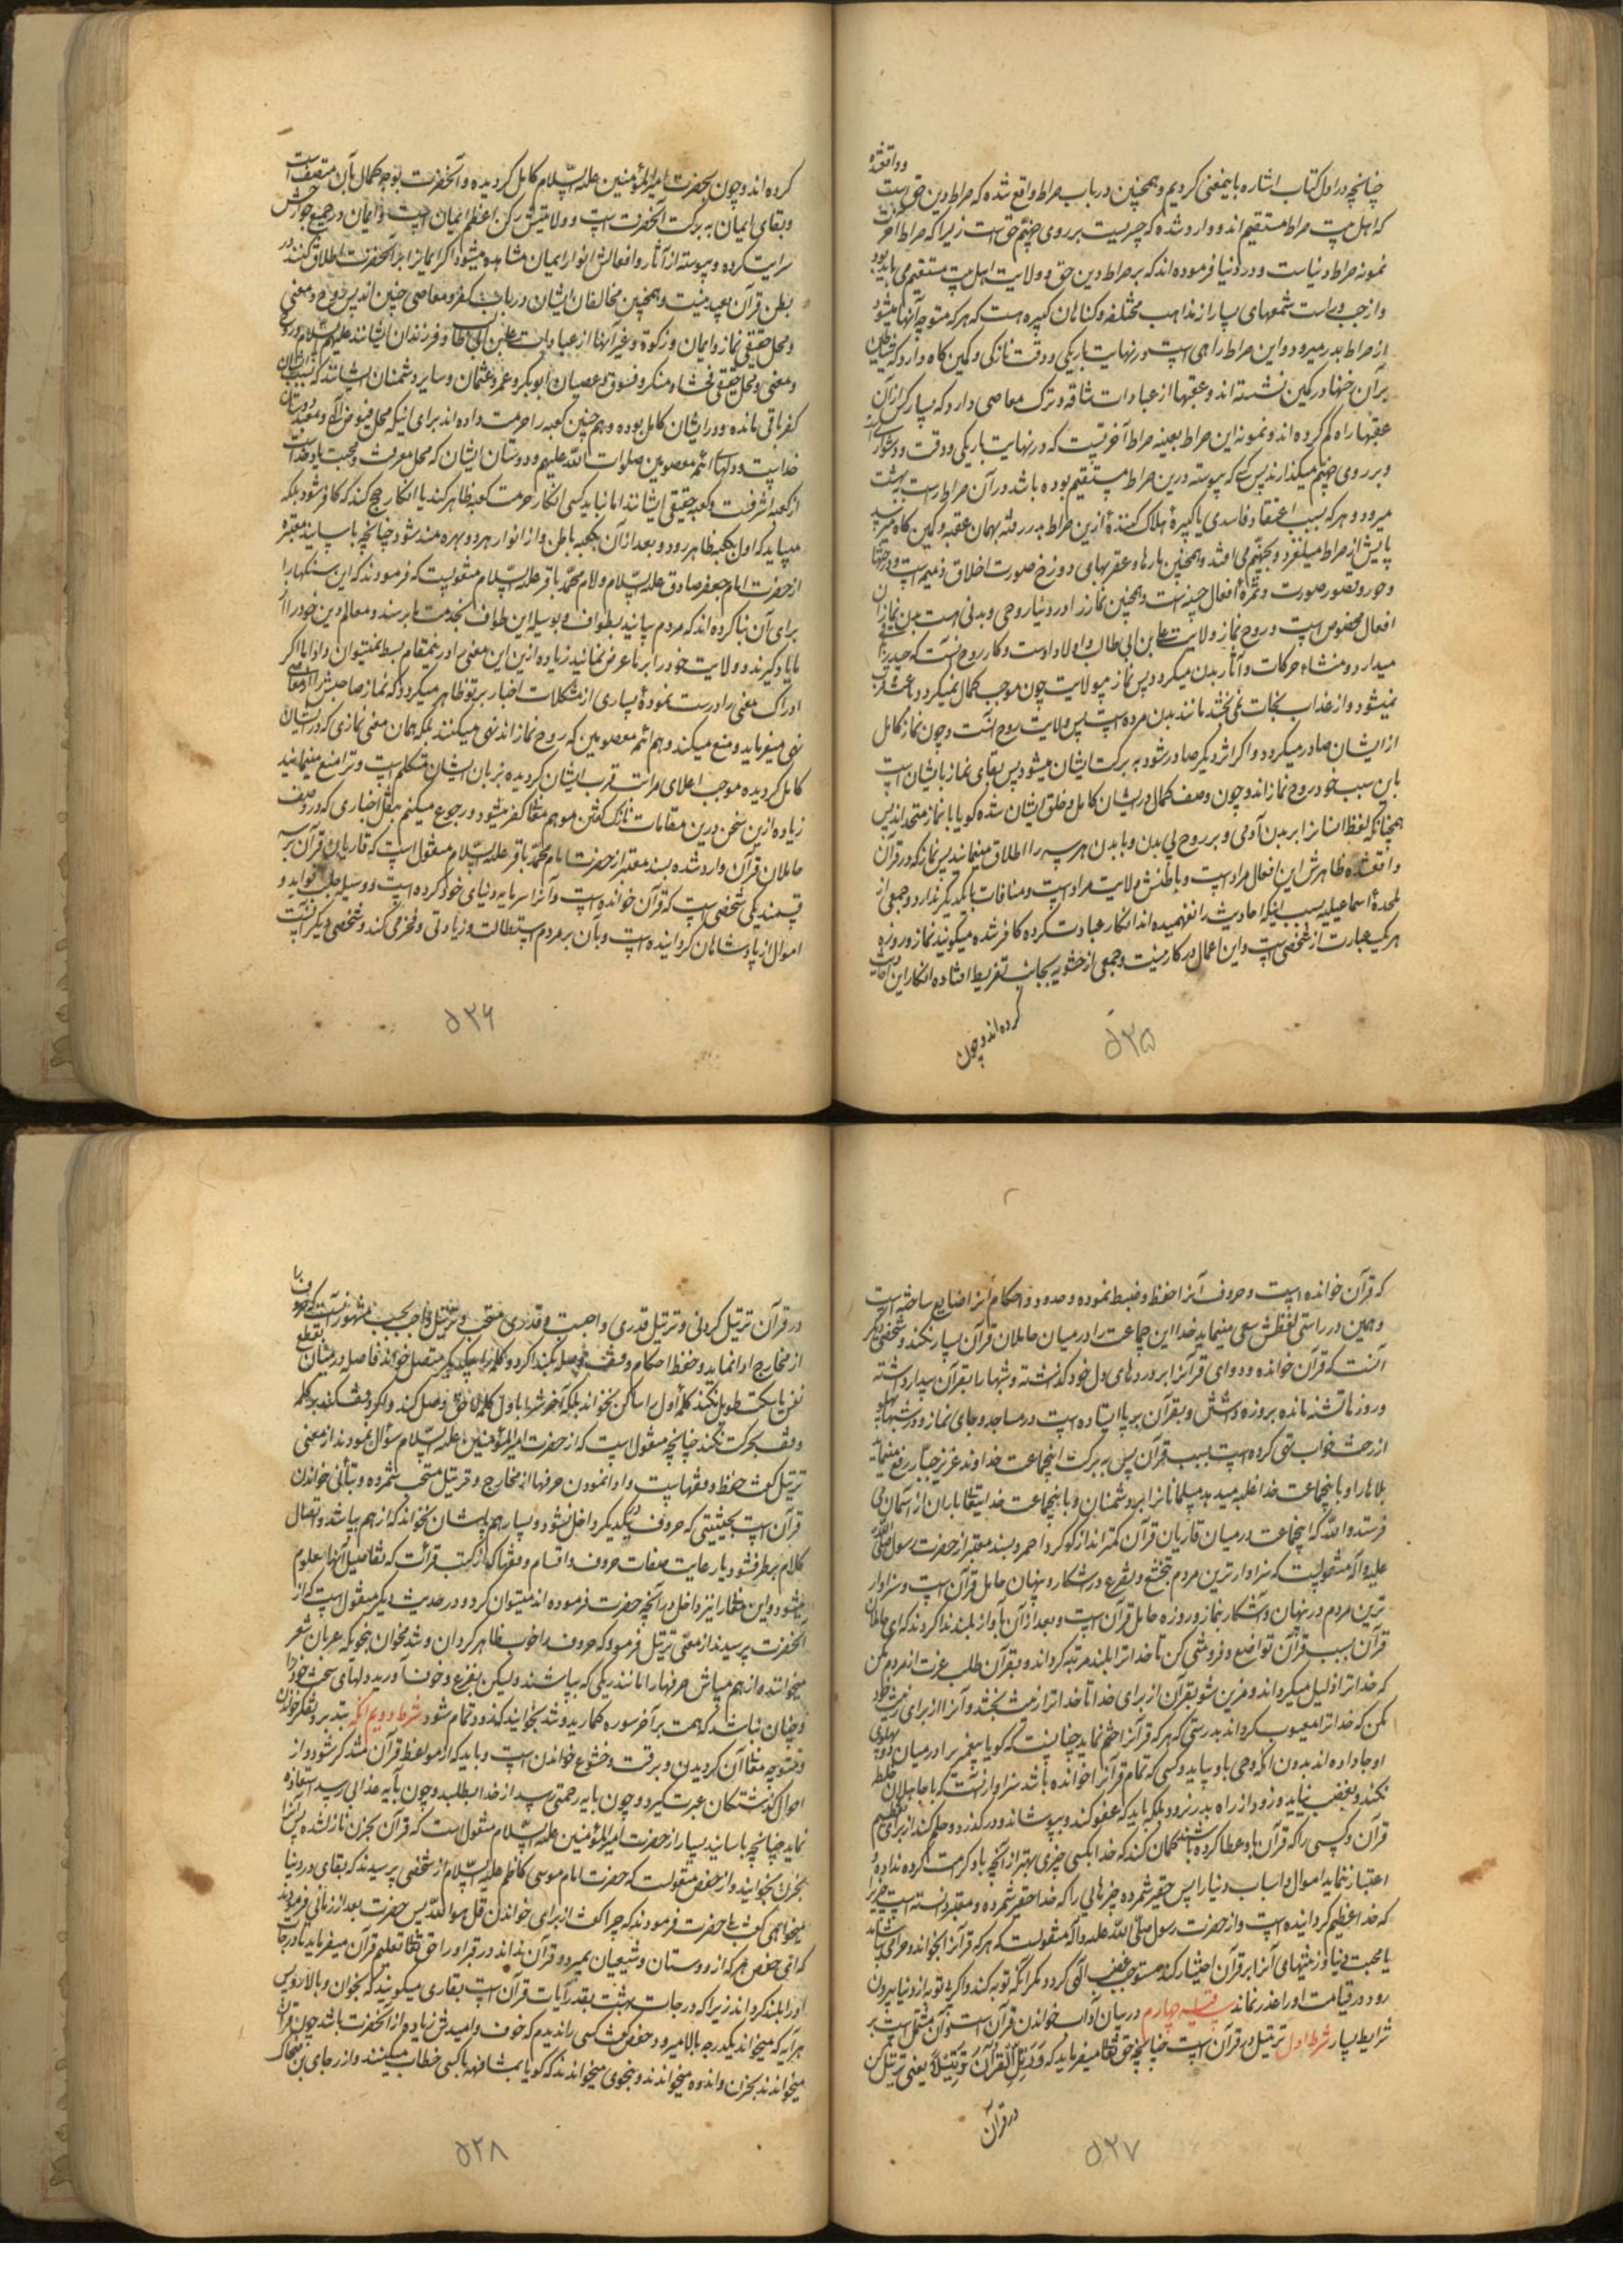 چنانچه در اول کتاب اشاره باینمعنی کردیم و همچنین در باب صراط واقع شده که صراط دین حق است
که اهل بیت صراط مستقیم‌اند و وارد شده که جسریست بر روی جهنم حق است زیرا که صراط آخرت
نمونه صراط دنیاست و در دنیا فرموده‌اند که بر صراط دین حق و ولایت اهل بیت مستقیم می باید بود
و از چپ و راست شعبهای بسیار از مذاهب مختلفه و کناهان کبیره هست که هر که متوجه آنها میشود
از صراط بدر میرود و این صراط راهی است در نهایت باریکی و دقت و نازکی و کمین کاه دارد که شیاطین
بر آن جنها در کمین نشسته‌اند و عقبها از عبادات شاقه و ترک معاصی دارد که بسیار کس از آن
عقبها راه کم کرده‌اند و نمونه این صراط بعینه صراط آخرتیست که در نهایت باریکی و دقت و دشواری
و بر روی جهنم میکذارند پس کسی که پیوسته درین صراط مستقیم بوده باشد در آن صراط راست به بهشت
میرود و هر که بسبب اعتقاد فاسدی یا کبیرهٔ هلاک کنندهٔ ازین صراط بدر رفته بهمان عقبه و کمین کاه میرسد
پایش از صراط میلغزد و بجهنم می افتد و همچنین مارها و عقربهای دوزخ صورت اخلاق ذمیمه است و درختها
و حور و قصور صورت و ثمرهٔ افعال حسنه است و همچنین نماز را در دنیا روحی و بدنی هست بدن نماز آن
افعال مخصوص است و روح نماز ولایت علی بن ابی طالب و اولاد اوست و کار روح آنست که جسد را باقی
میدارد و منشاء حرکات و آثار بدن میکردد پس نماز بیولایت چون موجب کمال نمیکردد و باعث قرب
نمیشود و از عذاب نجات نمی بخشد مانند بدن مرده است پس ولایت روح آنست و چون نماز کامل
از ایشان صادر میکردد و اکر از دیکر صادر شود به برکت ایشان میشود پس بقای نماز بایشان است
باین سبب خود روح نمازاند و چون وصف کمال در ایشان کامل و خلق ایشان شده کویا با نماز متحداند پس
همچنانکه لفظ انسانرا بر بدن آدمی و بر روح بی بدن و با بدن هر سه را اطلاق مینمایند پس نماز که در قرآن
واقعشده ظاهرش این افعال مراد است و باطنش ولایت مراد است و منافات با یکدیکر ندارد و جمعی از
ملحدهٔ اسماعیلیه بسبب اینکه احادیث را نفهمیده‌اند انکار عبادت کرده کافر شده میکویند نماز و روزه
هر یک عبارت از شخصی است و این اعمال در کار نیست و جمعی از حشویه بجانب تفریط افتاده انکار این احادیث
کرده‌اند و چون
۵۳۵
کرده‌اند و چون بحضرت امیرالمؤمنین علیه السلام کامل کردیده و آنحضرت بوجه کمال بآن متصف است
و بقای ایمان به برکت آنحضرت است و ولایتش رکن اعظم ایمان است و ایمان در جمیع جوارحش
سرایت کرده و پیوسته از آثار و افعالش انوار ایمان مشاهده میشود اکر ایمانرا بر آنحضرت اطلاق کنند در
بطن قرآن بعید نیست و همچنین مخالفان ایشان در باب کفر و معاصی چنین‌اند پس روح و معنی
و محل حقیقی نماز و ایمان و زکوة و غیر آنها از عبادات علی بن ابی طالب و فرزندان ایشانند علیهم السلام و روح
و معنی و محل حقیقی فحشاء و منکر و فسوق و عصیان ابوبکر و عمر و عثمان و سایر دشمنان ایشانند که بسبب ایشان
کفر باقی مانده و در ایشان کامل بوده و هم چنین کعبه را حرمت داده‌اند برای اینکه محل فیوض الهی و معبد دوستان
خداست و دلهای ائمه معصومین صلوات الله علیهم و دوستان ایشان که محل معرفت و محبت یاد خداست
از کعبه اشرفست و کعبه حقیقی ایشانند اما نباید کسی انکار حرمت کعبه ظاهر کند یا انکار حج کند که کافر شود بلکه
میباید که اول بکعبه ظاهر رود و بعد از آن بکعبه باطن و از انوار هر دو بهره مند شود چنانچه باسانید معتبره
از حضرت امام جعفر صادق علیه السلام و امام محمد باقر علیه السلام منقولست که فرمودند که این سنکها را
برای آن بنا کرده‌اند که مردم بیایند بطواف و بوسیله این طواف بخدمت ما برسند و معالم دین خود را از
ما یاد کیرند و ولایت خود را بر ما عرض نمایند زیاده ازین این معنی را درینمقام بسط نمیتوان داد اما اکر
ادراک معنی را درست نمودهٔ بسیاری از مشکلات اخبار بر تو ظاهر میکردد که نماز صاحبش را از معاصی
نهی میفرماید و منع میکند و هم ائمه معصومین که روح نمازاند نهی میکنند بلکه همان معنی نمازی که در ایشان
کامل کردیده موجب اعلای مراتب قرب ایشان کردیده بزبان ایشان متکلم است و ترا منع مینماید
زیاده ازین سخن درین مقامات نازک کفتن موهم مفاسد کفر میشود و رجوع میکنم بنقل اخباری که در وصف
حاملان قرآن وارد شده بسند معتبر از حضرت امام محمد باقر علیه السلام منقول است که قاریان قرآن بر سه
قسمند یکی شخصی است که قرآن خوانده است و آنرا سرمایه دنیای خود کرده است و وسیله جلب فواید و
اموال از پادشاهان کردانیده است و بآن بر مردم استطالت و زیادتی و فخر می کند و شخصی دیکر آنست
۵۳۶
که قرآن خوانده است و حروف آنرا حفظ و ضبط نموده و حدود و احکام آنرا ضایع ساخته است
و همین در راستی لفظش سعی مینماید خدا این جماعت را در میان حاملان قرآن بسیار نکند و شخصی دیکر
آنست که قرآن خوانده و دوای قرآنرا بر دردهای دل خود کذاشته و شبها را بقرآن بیدار داشته
و روزها تشنه مانده بروزه داشتن و بقرآن بر پا ایستاده است در مساجد و جای نماز و در شبها پهلو
از رخت خواب تهی کرده است بسبب قرآن پس به برکت اینجماعت خداوند عزیز جبار رفع مینماید
بلاها را و باینجماعت خدا غلبه میدهد مسلمانانرا بر دشمنان و باینجماعت خدایتعالی باران از آسمان می
فرستد والله که اینجماعت در میان قاریان قرآن کمتراند از کوکرد احمر و بسند معتبر از حضرت رسول صلی الله
علیه وآله منقولست که سزاوارترین مردم بتخشع و تضرع در آشکار و پنهان حامل قرآن است و سزاوار
ترین مردم در پنهان و آشکار بنماز و روزه حامل قرآن است و بعد از آن بآواز بلند ندا کردند که ای حامل
قرآن بسبب قرآن تواضع و فروتنی کن تا خدا ترا بلند مرتبه کرداند و بقرآن طلب عزت از مردم مکن
که خدا ترا ذلیل میکرداند و مزین شو بقرآن از برای خدا تا خدا ترا زینت بخشد و آنرا از برای زینت خود
مکن که خدا ترا معیوب کرداند بدرستی که هر که قرآنرا ختم نماید چنانست که کویا پیغمبری در میان دو پهلوی
او جا داده‌اند بدون آنکه وحی باو بیاید و کسی که تمام قرآنرا خوانده باشد سزاوار آنست که با جاهلان غلط
نکند و بغضب نیاید و زود از راه بدر نرود بلکه باید که عفو کند و بپوشاند و درکذرد و حلم کند از برای تعظیم
قرآن و کسی را که قرآن باو عطا کرده باشند کمان کند که خدا بکسی چیزی بهتر از آنچه باو کرامت کرده نداده و
اعتبار ننماید اموال و اسباب دنیا را پس حقیر شمرده چیزهایی را که خدا حقیر شمرده و حقیر دانسته است چیزیرا
که خدا عظیم کردانیده است و از حضرت رسول صلی الله علیه وآله منقولست که هر که قرآنرا بخواند و حرامی بیاشامد
یا محبت دنیا و زینتهای آنرا بر قرآن اختیار کند مستوجب غضب الهی کردد مکر آنکه توبه کند و اکر بی توبه از دنیا بیرون
رود در قیامت او را عذر نماند تسلیه چهارم در بیان آداب خواندن قرآن است و آن مشتمل است بر
شرایط بسیار شرط اول ترتیل در قرآن است چنانچه حق تعالی میفرماید که وَرَتِّلِ الْقُرْآنَ تَرْتِیلاً یعنی ترتیل کن
در قرآن
۵۳۷
در قرآن ترتیل کردنی و ترتیل قدری واجبست و قدری مستحب و ترتیل واجب بحسب مشهور آنست که حروف را
از مخارج ادا نماید و حفظ احکام وقف و وصل بکند اکر دو کلمه را بیکدیکر متصل خواند فاصله در میان بقطع
نفس یا سکت طویل نکند کلمه اول را ساکن نخواند بلکه آخرش را باول کلمه لاحق وصل کند و اکر وقف کند بر کلمه
وقف بحرکت نکند چنانچه منقول است که از حضرت امیرالمؤمنین علیه السلام سؤال نمودند از معنی
ترتیل کفت حفظ وقفهاست و ادا نمودن حرفها از مخارج و ترتیل مستحب شمرده و بتأنی خواندن
قرآن است بحیثیتی که حروف در یکدیکر داخل نشود و بسیار هم پریشان نخواند که از هم بپاشد و اتصال
کلام بر طرف شود یا رعایت صفات حروف و اقسام وقفها که از کتب قرائت که تفاصیل آنها معلوم
میشود و این معنی را نیز داخل در آنچه حضرت فرموده‌اند میتوان کرد و در حدیث دیکر منقول است که از
آنحضرت پرسیدند از معنی ترتیل فرمود که حروف را خوب ظاهر کردان و تند مخوان بنحویکه عربان شعر
میخوانند و از هم مپاش حرفها را مانند ریکی که بپاشند ولیکن بفزع و خوف آورید دلهای سخت خود را
و چنان نباشد که همت بر آخر سوره کمارید و تند بخوانید که زود تمام شود شرط دویم آنکه بتدبر و تفکر خواندن
و متوجه معانی آن کردیدن و برقت و خشوع خواندن است و باید که از مواعظ قرآن متذکر شود و از
احوال کذشتکان عبرت کیرد و چون بآیه رحمتی رسد از خدا بطلبد و چون بآیه عذابی رسد استعاذه
نماید چنانچه باسانید بسیار از حضرت امیرالمؤمنین علیه السلام منقول است که قرآن بحزن نازل شده پس آنرا
بحزن بخوانید و از حفص منقولست که حضرت امام موسی کاظم علیه السلام از شخصی پرسیدند که بقای در دنیا
میخواهی کفت بلی حضرت فرمودند که چرا کفت از برای خواندن قل هو الله پس حضرت بعد از زمانی فرمودند
که ای حفص هر که از دوستان و شیعیان بمیرد و قرآن نداند در قبر او را حق تعالی تعلیم قرآن میفرماید تا درجات
او را بلند کرداند زیرا که درجات بهشت بقدر آیات قرآن است بقاری میکویند که بخوان و بالا رو پس
هر آیه که میخواند یکدرجه بالا میرود حفص کفت کسی را ندیدم که خوف و امیدش زیاده از آنحضرت باشد چون قرآن
میخواندند بحزن و اندوه میخواندند و بنحوی میخواندند که کویا بمشافهه با کسی خطاب میکنند و از رجای بن ضحاک
۵۳۸